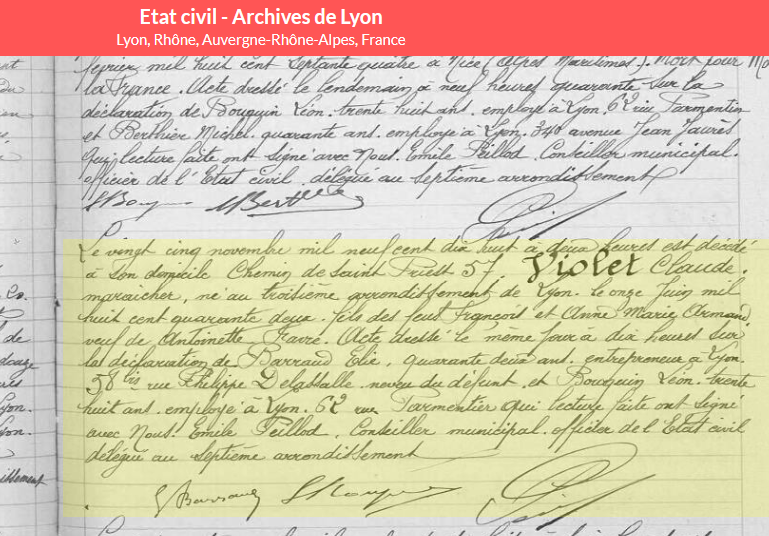 Etat civil - Archives de Lyon
Lyon, Rhône, Auvergne-Rhône-Alpes, France
février mil huit cent septante quatre à Nice (Alpes Maritimes). Mort pour
la France. Acte dressé le lendemain à neuf heures quarante sur la
déclaration de Bouquin Léon. trente huit ans. employé à Lyon. 62 rue Parmentier
et Berthier Michel. quarante ans. employé à Lyon. 340 avenue Jean Jaurès
qui, lecture faite ont signé avec Nous. Emile Peillod. Conseiller municipal.
officier de l'Etat Civil délégué au septième arrondissement
Le vingt cinq novembre mil neuf cent dix huit à deux heures est décédé
à son domicile Chemin de Saint Priest 57. Violet Claude.
maraicher, né au troisième arrondissement de Lyon. le onze Juin mil
huit cent quarante deux. fils des feus François et Anne Marie Armand
veuf de Antoinette Favre. Acte dressé le même jour à dix heures sur
la déclaration de Barraud Elie, quarante deux ans. entrepreneur à Lyon.
56 bis rue Philippe Delassalle. neveu du défunt et Bouquin Léon. trente
huit ans. employé à Lyon. 62 rue Parmentier qui lecture faite ont signé
avec Nous. Emile Peillod, Conseiller municipal. officier de l'Etat civil
délégué au septième arrondissement